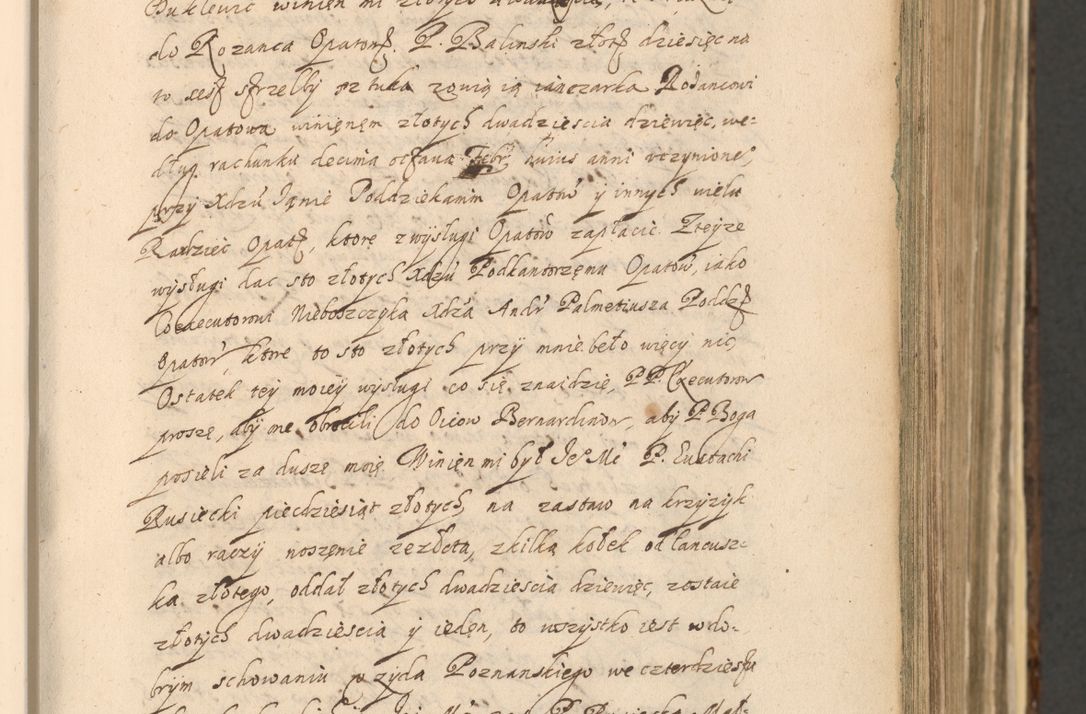 winien mi złotych
do Rozanca Opatow. P. Balinski złot. dziesięc na
to sest strzelby sztuka zowią ią ianczarka Rożancowi
do Opatowa winienem złotych dwadziescia dziewięc, we-
dług rachunku decima octava Febr. huius anni vczynione,
przy Xdzu Janie Poddziekanim Opatow y innych wielu
Opat, ktore z wysługi Opatow zapłacic. Zteyze
wysługi dac sto złotych Xdzu Podkantorzemu Opatow, iako
Coexecutorowi Nieboszczyka Xdza Andr Palmetiusza Poddz
Opatow, ktore to sto złotych przy mnie beło więcy nic,
Ostatek tey moiey wysługi co się znaidzie, PP. Executorow
proszę, aby me obrocili do Oicow Bernardinow, aby P. Boga
prosieli za duszę moię, Winien mi był Je Mć P. Eustachi
Rusiecki piędziesiąt złotych, na zastaw na krzyzyk
albo raczy noszęnie zezłota, zkilką kołek od łancusz-
ka złotego, oddał złotych dwadziescia dziewięc, zostaie
złotych dwadziescia y ieden, to wszystko iest w do-
brym schowaniu v zyda Poznanskiego we czterdziestu